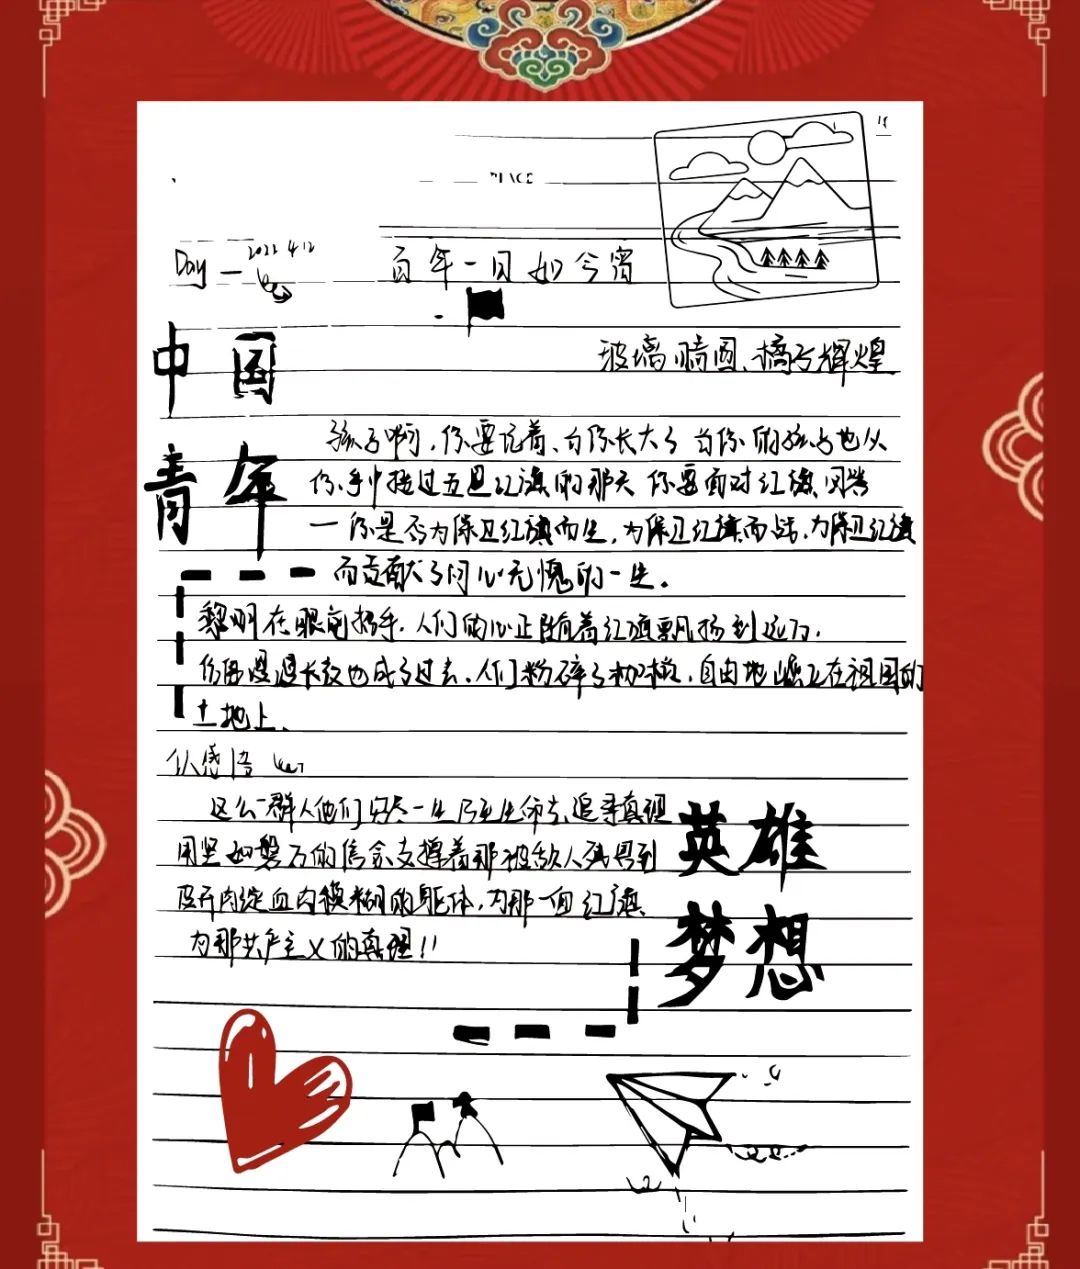 PLACE
Day 一 2022 4.12
百年一日如今宵
中国
青年
玻璃晴圆、橘子辉煌
孩子啊，你要记着、当你长大了 当你的孩子也从
你手中接过五星红旗的那天 你要面对红旗问答
一 你是否为保卫红旗而生，为保卫红旗而战，为保卫红旗
而贡献了问心无愧的一生。
黎明在眼前招手，人们的心正随着红旗飘扬到远方，
漫漫长夜也成了过去，人们粉碎了枷锁，自由地屹立在祖国的
土地上、
感悟
这么一群人他们穷尽一生乃至生命去追寻真理
用坚如磐石的信念支撑着那被敌人残暴到
皮开肉绽血肉模糊的躯体，为那一面红旗
为那共产主义的真理!!
英雄
梦想